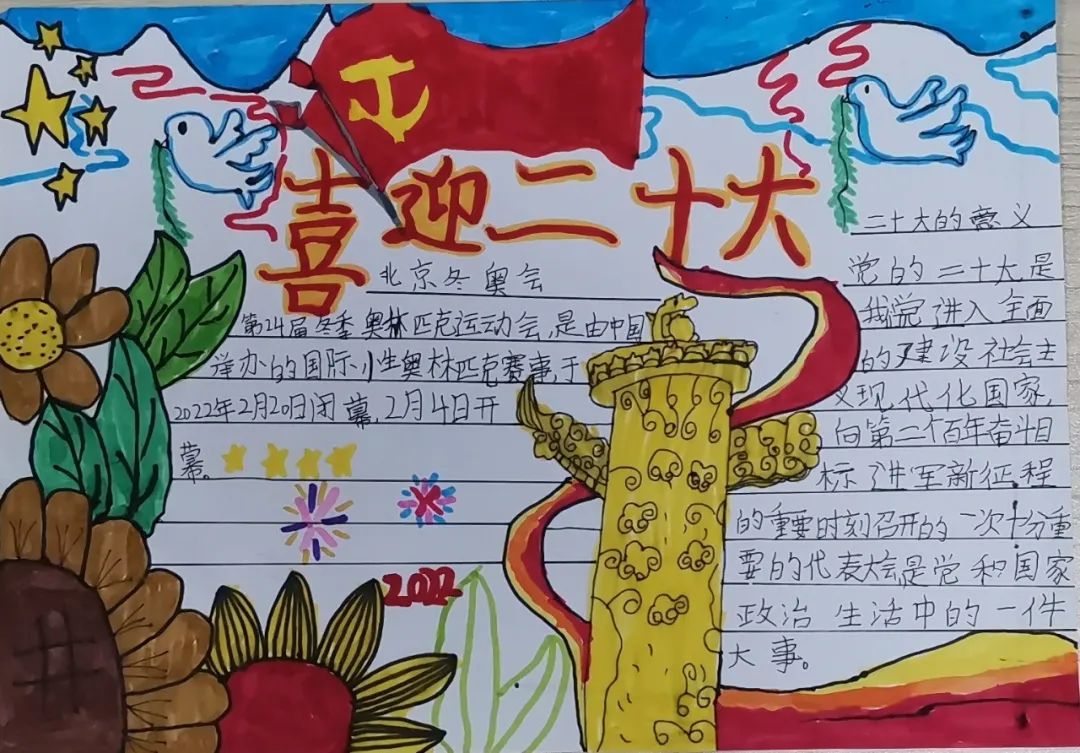 喜迎二十大
北京冬奥会
第24届冬季奥林匹克运动会,是由中国
举办的国际小生奥林匹克赛事,于
2022年2月20日闭幕,2月4日开
幕。
2022
二十大的意义
党的二十大是
我党进入全面
的建设社会主
义现代化国家,
向第二个百年奋斗目
标进军新征程
的重要时刻召开的一次十分重
要的代表大会,是党和国家
政治生活中的一件
大事。